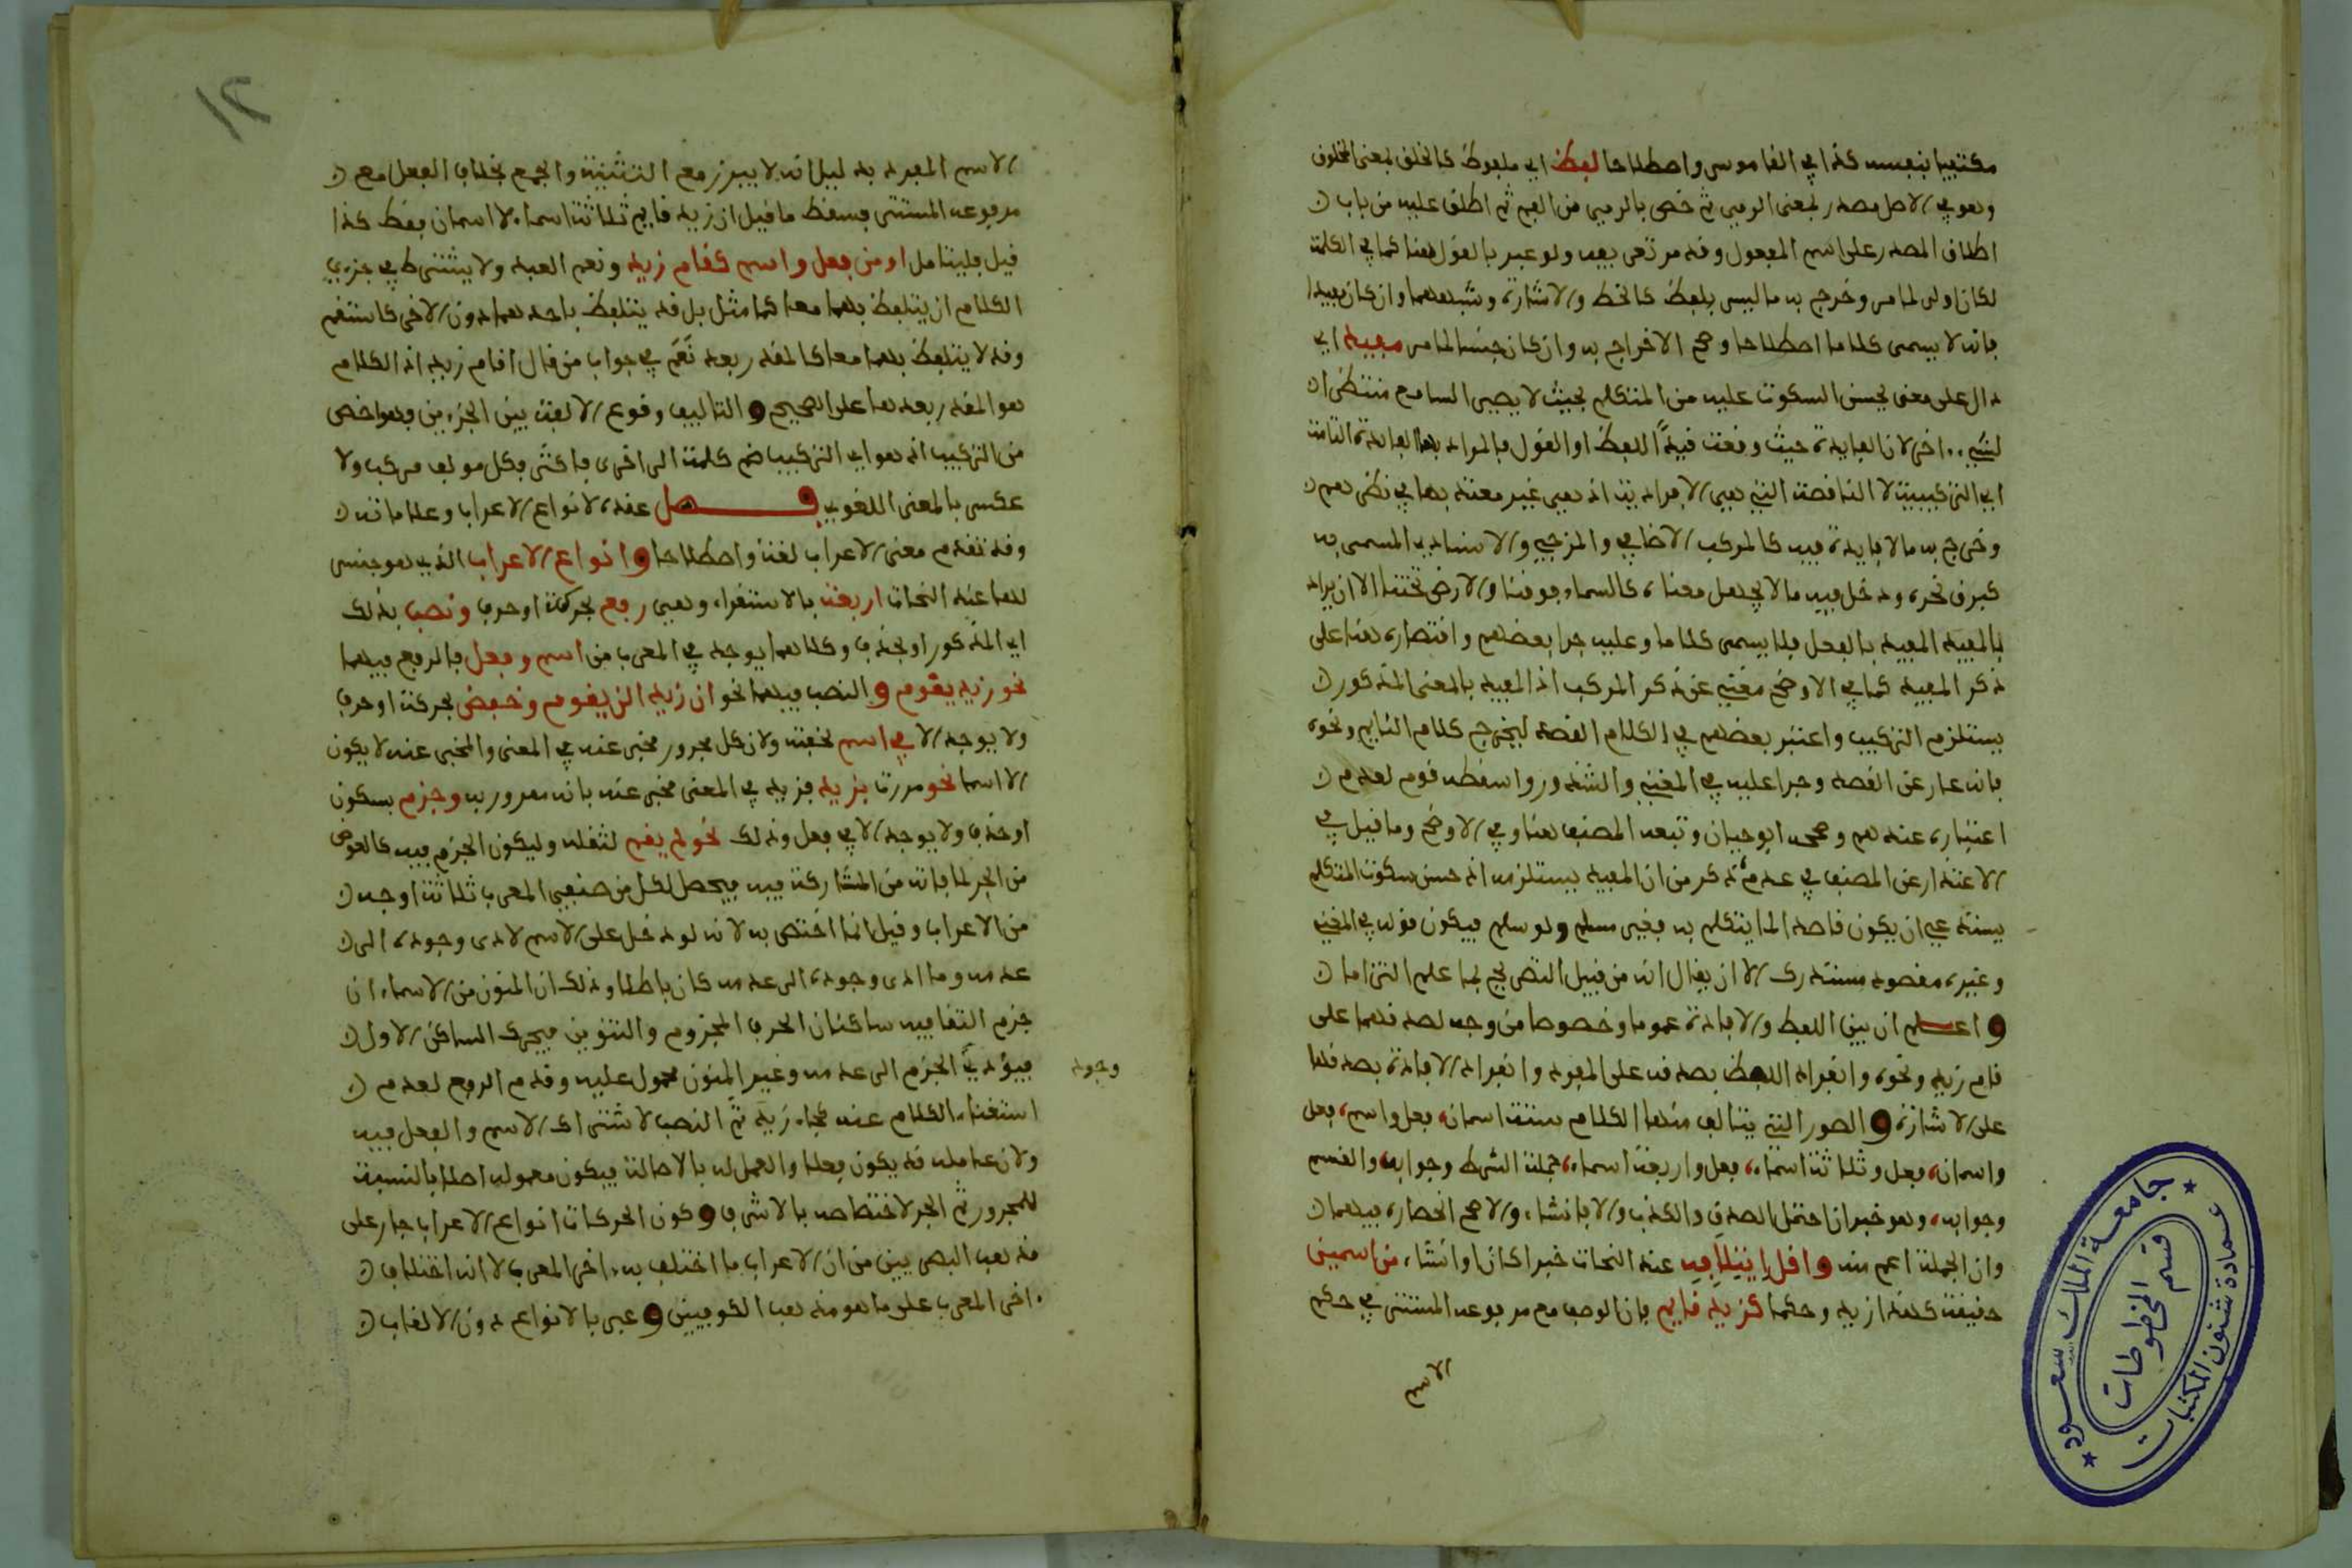 مكتفيا بنفسه كذا في القاموس واصطلاحا لفظ اي ملفوظ كالخلق بمعنى المخلوق
وهو في الاصل مصدر بمعنى الرمي ثم خص بالرمي من الفم ثم اطلق عليه من باب
اطلاق المصدر على اسم المفعول وقد مر تعريفه ولو عبر بالقول هنا كما في الكلمة
لكان اولى لما مر وخرج به ما ليس بلفظ كالخط والاشارة وشبههما وان كان مفيدا
فانه لا يسمى كلاما اصطلاحا وصح الاخراج به وان كان جنسا لما مر مفيد اي
دال على معنى يحسن السكوت عليه من المتكلم بحيث لا يصير السامع منتظرا
لشيء اخر لان الفايدة حيث وقعت قيدا للفظ او القول فالمراد بها الفايدة التامة
اي التركيبية لا الناقصة التي هي الافرادية اذ هي غير معتد بها في نظرهم
وخرج به ما لا فايدة فيه كالمركب الاضافي والمزجي والاسنادي المسمى به
كبرق نحره ودخل فيه ما لا يجهل معناه كالسماء فوقنا والارض تحتنا الا ان يراد
بالمفيد المفيد بالفعل فلا يسمى كلاما وعليه جرا بعضهم واقتصاره هنا على
ذكر المفيد كما في الاوضح مغني عن ذكر المركب اذ المفيد بالمعنى المذكور
يستلزم التركيب واعتبر بعضهم في الكلام القصد ليخرج كلام النايم ونحوه
فانه عار عن القصد وجرا عليه في المغني والشذور واسقطه قوم لعدم
اعتباره عندهم وصححه ابوحيان وتبعه المصنف هنا وفي الاوضح وما قيل في
الاعتذار عن المصنف في عدم ذكر من ان المفيد يستلزمه اذ حسن سكوت المتكلم
يستدعي ان يكون قاصدا لما يتكلم به فغير مسلم ولو سلم فيكون قوله في المغني
وغيره مقصود مستدرك الا ان يقال انه من قبيل التصريح بما علم التزاما
واعلم ان بين اللفظ والافادة عموما وخصوصا من وجه لصدقهما على
قام زيد ونحوه وانفراد اللفظ بصدقه على المفرد وانفراد الافادة بصدقها
على الاشارة والصور التي يتالف منها الكلام ستة اسمان، فعل واسم، فعل
واسمان، فعل وثلاثة اسماء، فعل واربعة اسماء، جملة الشرط وجوابه، والقسم
وجوابه، وهو خبر ان احتمل الصدق والكذب والا فانشاء، والاصح انحصاره فيهما
وان الجملة اعم منه واقل ايتلافه عند النحاة خبرا كان او انشاء، من اسمين
حقيقة كهذا زيد وحكما كزيد قايم فان الوصف مع مرفوعه المستتر في حكم
الاسم
١٢
الاسم المفرد بدليل انه لا يبرز مع التثنية والجمع بخلاف الفعل مع
مرفوعه المستتر فسقط ما قيل ان زيد قايم ثلاثة اسماء لا اسمان فقط كذا
قيل فليتامل او من فعل واسم كقام زيد ونعم العبد ولا يشترط في جزءي
الكلام ان يتلفظ بهما معا كما مثل بل قد يتلفظ باحدهما دون الاخر كاستقم
وقد لا يتلفظ بهما معا كالمقدر بعد نعم في جواب من قال اقام زيد اذ الكلام
هو المقدر بعدها على الصحيح والتاليف وقوع الالفة بين الجزءين فهو اخص
من التركيب اذ هو اي التركيب ضم كلمة الى اخرى فاكثر فكل مولف مركب ولا
عكس بالمعنى اللغوي فصل عقده لانواع الاعراب وعلاماته
وقد تقدم معنى الاعراب لغة واصطلاحا وانواع الاعراب الذي هو جنس
لها عند النحاة اربعة بالاستقراء وهي رفع بحركة او حرف ونصب بذلك
اي المذكور او بحذف وكلاهما يوجد في المعرب من اسم وفعل فالرفع فيهما
نحو زيد يقوم والنصب فيهما نحو ان زيدا لن يقوم وخفض بحركة او حرف
ولا يوجد الا في اسم لخفته ولان كل مجرور مخبر عنه في المعنى والمخبر عنه لا يكون
الا اسما نحو مررت بزيد فزيد في المعنى مخبر عنه بانه ممرور به وجزم بسكون
او حذف ولا يوجد الا في فعل وذلك نحو لم يقم لثقله وليكون الجزم فيه كالعوض
من الجر لما فاته من المشاركة فيه فيحصل لكل من صنفي المعرب ثلاثة اوجه
من الاعراب وقيل انما اختص به لانه لو دخل على الاسم لادى وجوده الى
عدمه وما ادى وجوده الى عدمه كان باطلا وذلك ان المنون من الاسماء ان
جزم التقا فيه ساكنان الحرف المجزوم والتنوين فيحرك الساكن الاول
فيؤدي الجزم الى عدمه وغير المنون محمول عليه وقدم الرفع لعدم
وجود
استغناء الكلام عنه كجاء زيد ثم النصب لاشتراك الاسم والفعل فيه
ولان عامله قد يكون فعلا والعمل له بالاصالة فيكون معموله اصلا بالنسبة
للمجرور ثم الجر لاختصاصه بالاشرف وكون الحركات انواع الاعراب جار على
مذهب البصريين من ان الاعراب ما اختلف به اخر المعرب لا انه اختلاف
اخر المعرب على ما هو مذهب الكوفيين وعبر بالانواع دون الالقاب
جامعة الملك سعود
عمادة شئون المكتبات
قسم المخطوطات